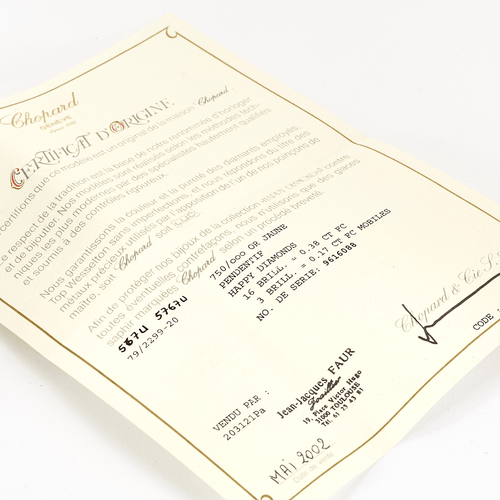 Chopard
GENÈVE
CERTIFICAT D'ORIGINE
certifions que ce modèle est un original de la maison Chopard.
respect de la tradition est la base de notre renommée d'horloger
et de bijoutier. Nos modèles sont réalisés selon les méthodes tech-
les plus modernes par des spécialistes hautement qualifiés
et soumis à des contrôles rigoureux.
Nous garantissons la couleur et la pureté des diamants employés
Top Wesselton sans imperfections et nous répondons du titre des
métaux précieux utilisés par l'apposition de l'un de nos poinçons de
maître, soit Chopard soit
Afin de protéger nos bijoux de la collection HAPPY DIAMONDS contre
toutes éventuelles contrefaçons, nous n'utilisons que des glaces
saphir marquées Chopard selon un procédé breveté.
5674 5767U
79/2299-20
750/000 OR JAUNE
PENDENTIF
HAPPY DIAMONDS
16 BRILL. = 0.38 CT FC
3 BRILL. = 0.17 CT FC MOBILES
NO. DE SERIE: 9616088
Chopard & Cie S.
CODE
VENDU PAR :
203121Pa
Jean-Jacques FAUR
Joaillier
19, Place Victor Hugo
31000 TOULOUSE
Tél. 61 23 43 81
MAI 2002
Date de vente